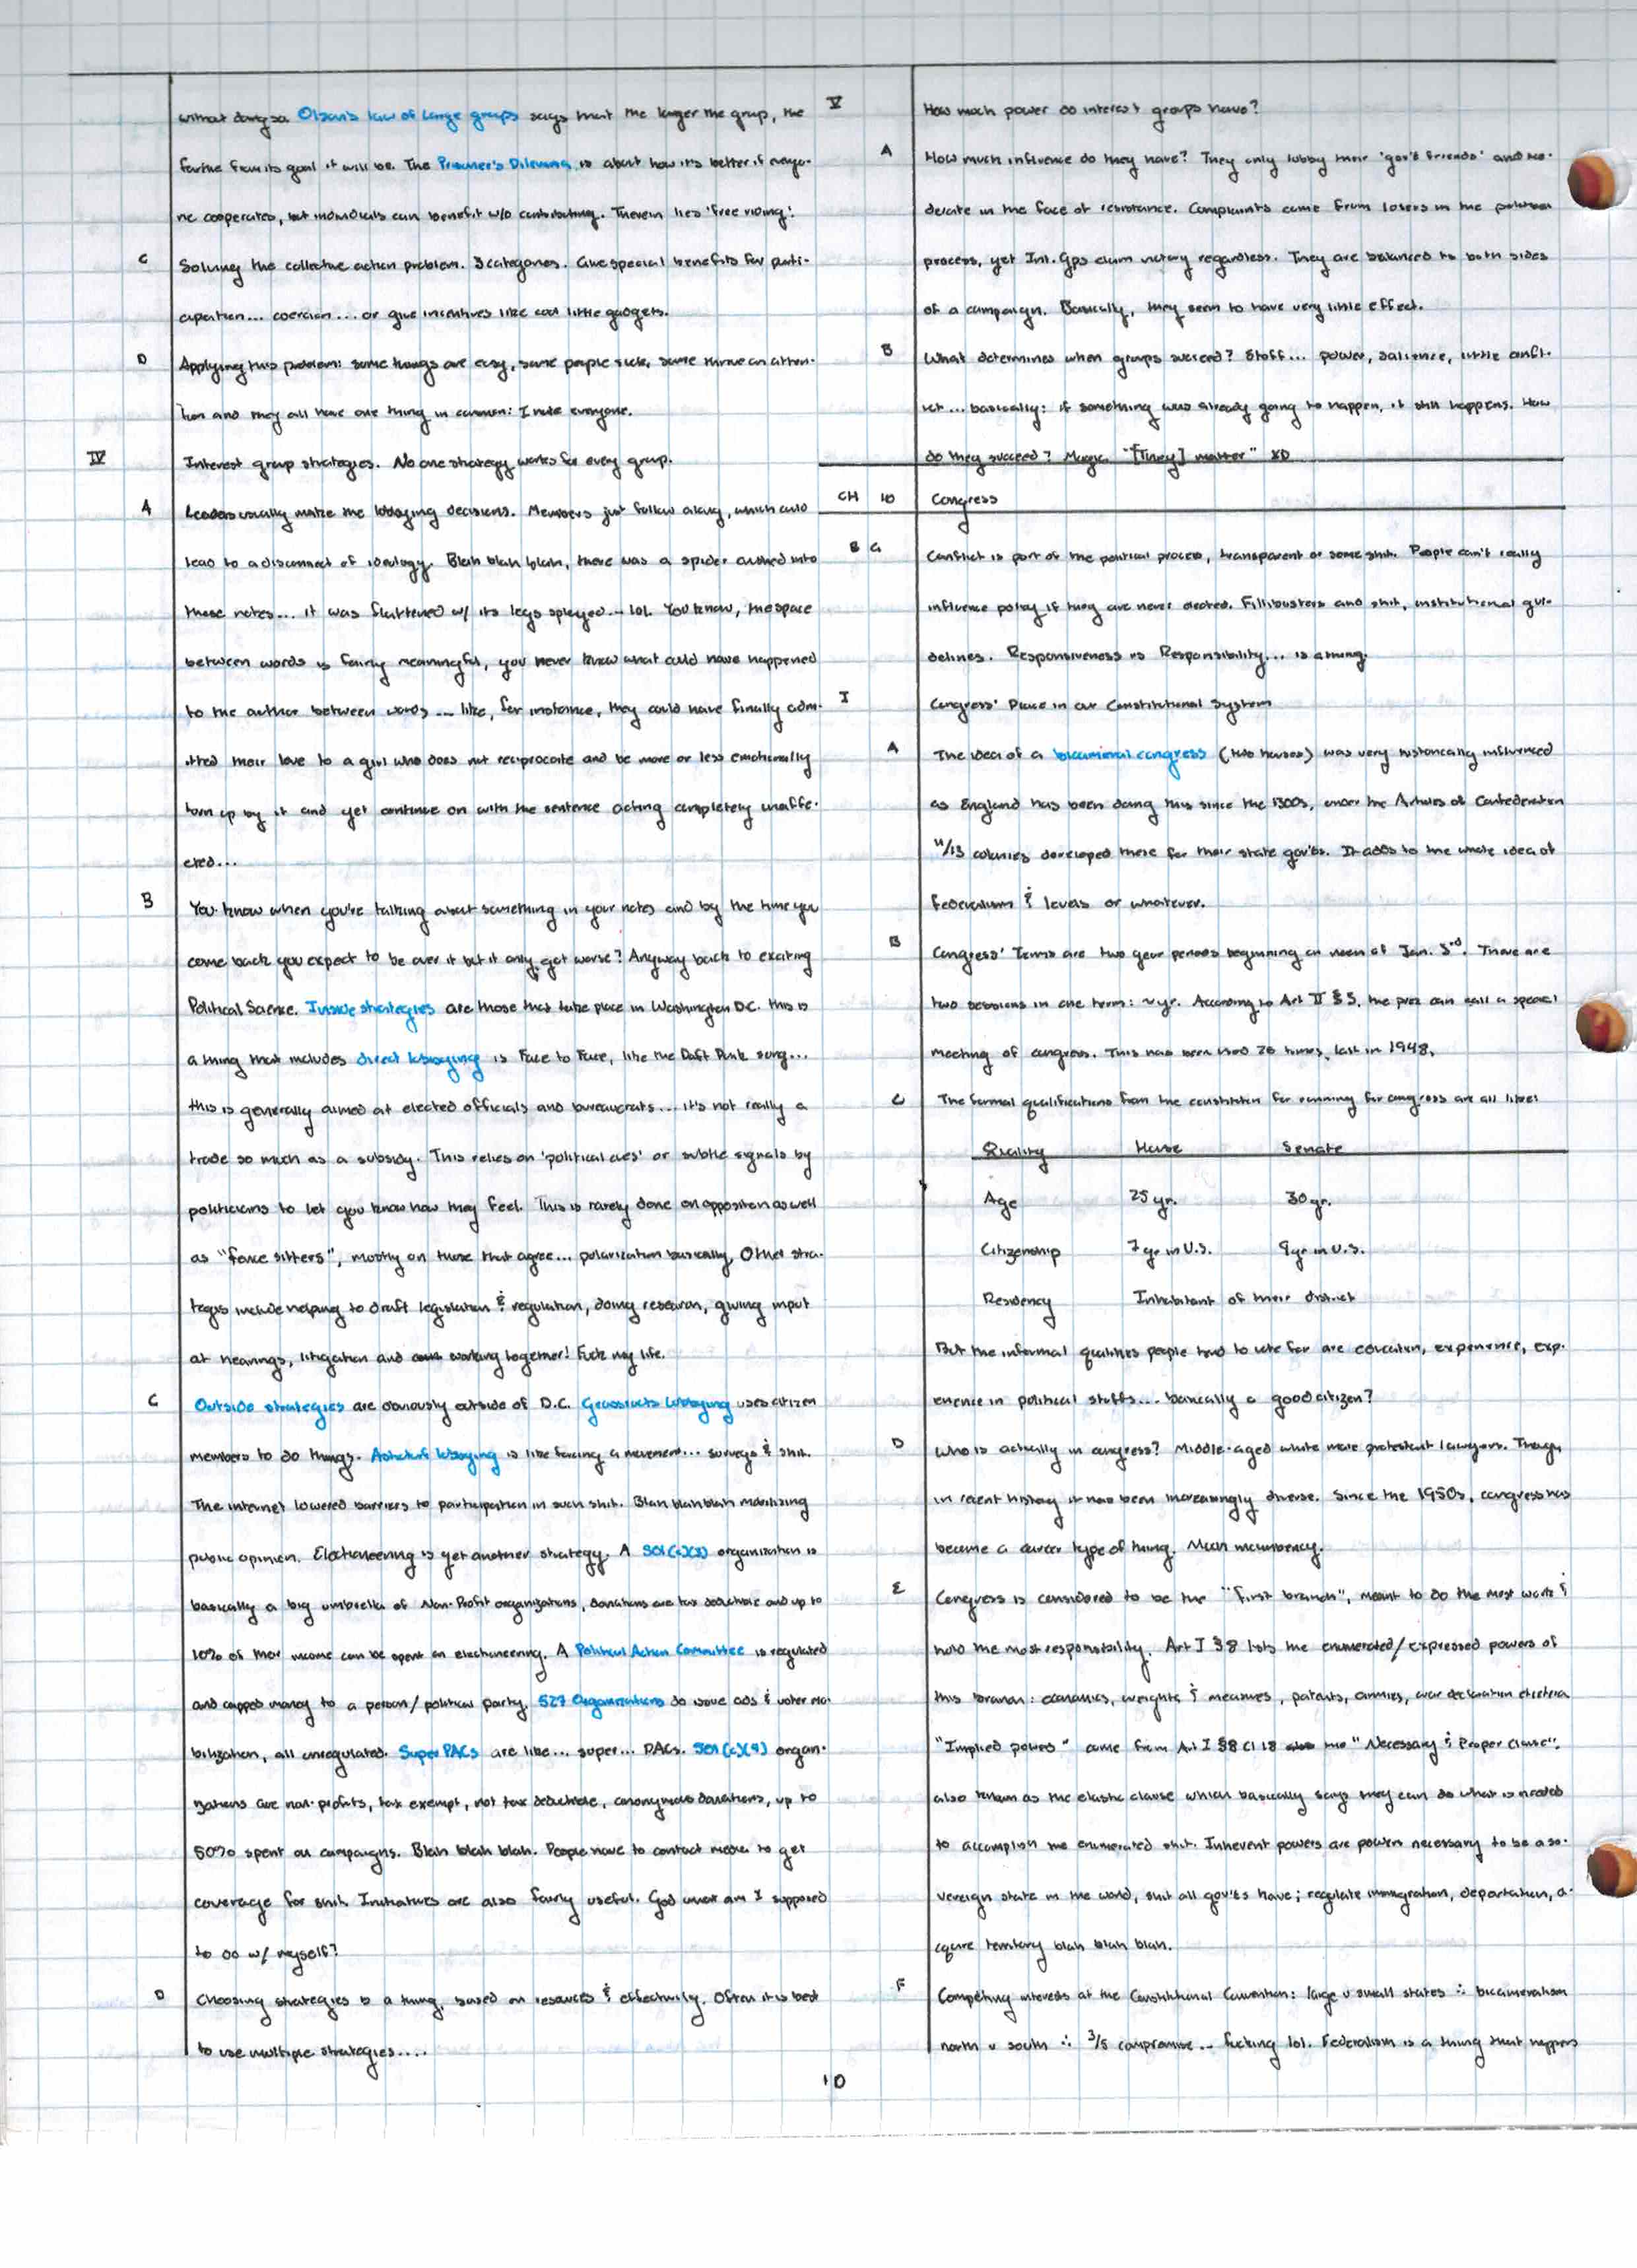 without doing so. Olson's law of large groups says that the larger the group, the
farther from its goal it will be. The Prisoner's Dilemma is about how it's better if everyo-
ne cooperates, but individuals can benefit w/o contributing. Therein lies 'free riding'.
C Solving the collective action problem. 3 categories. Give special benefits for parti-
cipation... coercion... or give incentives like cool little gadgets.
D Applying this problem: some things are easy, some people suck, some thrive on atten-
tion and they all have one thing in common: I hate everyone.
IV Interest group strategies. No one strategy works for every group.
A Leaders usually make the lobbying decisions. Members just follow along, which could
lead to a disconnect of ideology. Blah blah blah, there was a spider crushed into
these notes... it was flattened w/ its legs splayed... lol. You know, the space
between words is fairly meaningful, you never know what could have happened
to the author between words... like, for instance, they could have finally adm-
itted their love to a girl who does not reciprocate and be more or less emotionally
torn up by it and yet continue on with the sentence acting completely unaffe-
cted...
B You know when you're talking about something in your notes and by the time you
come back you expect to be over it but it only got worse? Anyway back to exciting
Political Science. Inside strategies are those that take place in Washington D.C. this is
a thing that includes direct lobbying is Face to Face, like the Daft Punk song...
this is generally aimed at elected officials and bureaucrats... it's not really a
trade so much as a subsidy. This relies on 'political cues' or subtle signals by
politicians to let you know how they feel. This is rarely done on opposition as well
as "fence sitters", mostly on those that agree... polarization basically. Other stra-
tegies include helping to draft legislation & regulation, doing research, giving input
at hearings, litigation and working together! Fuck my life.
C Outside strategies are obviously outside of D.C. Grassroots Lobbying uses citizen
members to do things. Astroturf lobbying is like faking a movement... surveys & shit.
The internet lowered barriers to participation in such shit. Blah blah blah mobilizing
public opinion. Electioneering is yet another strategy. A 501(c)(3) organization is
basically a big umbrella of Non-Profit organizations, donations are tax deductible and up to
10% of their income can be spent on electioneering. A Political Action Committee is regulated
and capped money to a person/political party. 527 Organizations do issue ads & voter mo-
bilization, all unregulated. Super PACs are like... super... PACs. 501(c)(4) organ-
izations are non-profits, tax exempt, not tax deductible, anonymous donations, up to
50% spent on campaigns. Blah blah blah. People have to contact media to get
coverage for shit. Initiatives are also fairly useful. God what am I supposed
to do w/ myself?
D Choosing strategies is a thing, based on resources & effectivity. Often it is best
to use multiple strategies....
V How much power do interest groups have?
A How much influence do they have? They only lobby their 'gov't friends' and mo-
derate in the face of resistance. Complaints come from losers in the political
process, yet Int. Gps claim victory regardless. They are balanced to both sides
of a campaign. Basically, they seem to have very little effect.
B What determines when groups succeed? Stuff... power, salience, little confl-
ict... basically: if something was already going to happen, it still happens. How
do they succeed? Magic. "[They] matter" XD
CH 10 Congress
BG Conflict is part of the political process, transparent or some shit. People can't really
influence policy if they are never elected. Fillibusters and shit, institutional gui-
delines. Responsiveness vs Responsibility... is a thing.
I Congress' Place in our Constitutional System
A The idea of a bicameral congress (two houses) was very historically influenced
as England has been doing this since the 1300s, under the Articles of Confederation
11/13 colonies developed these for their state gov'ts. It adds to the whole idea of
Federalism & levels or whatever.
B Congress' Terms are two year periods beginning on noon of Jan. 3rd. There are
two sessions in one term: ~yr. According to Art II §3, the prez can call a special
meeting of congress. This has been used 26 times, last in 1948.
C The formal qualifications from the constitution for running for congress are all like:
Quality House Senate
Age 25 yr. 30 yr.
Citizenship 7 yr in U.S. 9 yr in U.S.
Residency Inhabitant of their district
But the informal qualities people tend to vote for are education, experience, exp-
erience in political stuffs... basically a good citizen?
D Who is actually in congress? Middle-aged white male protestant lawyers. Though
in recent history it has been increasingly diverse. Since the 1950s, congress has
become a career type of thing. Much incumbency.
E Congress is considered to be the "first branch", meant to do the most work &
hold the most responsibility. Art I §8 lists the enumerated/expressed powers of
this branch: economics, weights & measures, patents, armies, war declaration etcetera
"Implied powers" come from Art I §8 Cl 18 the "Necessary & Proper Clause".
also known as the elastic clause which basically says they can do what is needed
to accomplish the enumerated shit. Inherent powers are powers necessary to be a so-
vereign state in the world, shit all gov'ts have; regulate immigration, deportation, a-
cquire territory blah blah blah.
F Competing interests at the Constitutional Convention: large v small states ∴ bicameralism
north v south ∴ 3/5 compromise... fucking lol. Federalism is a thing that happens
10